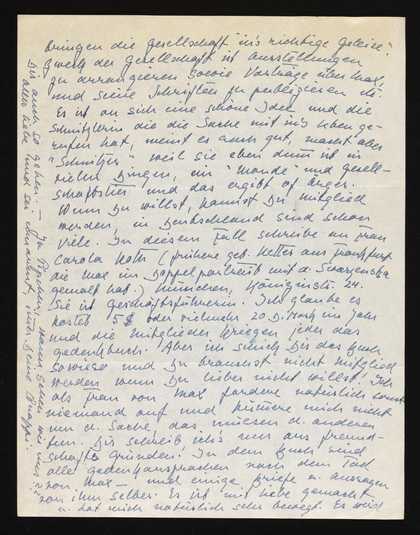 bringen die Gesellschaft in's richtige Geleise!
Zweck der Gesellschaft ist Ausstellungen
zu arrangieren sowie Vorträge über Max
und seine Schriften zu publizieren etc.
Es ist an sich eine schöne Idee und die
die die Sache mit in's Leben ge-
rufen hat, meint es auch gut, macht aber
"Schnitzer" weil sie eben dumm ist in
vielen Dingen, ein "Mondä" und Gesell-
schaftstier und das ergibt oft Ärger.
Wenn Du willst, kannst Du Mitglied
werden, in Deutschland sind schon
Viele. In diesem Fall schreibe an Frau
Carola (frühere geb. Netter aus Frankfurt
die Max im Doppelportrait mit d. Swarzenska
gemalt hat.) München, Königinstr. 24.
Sie ist Geschäftsführerin. Ich glaube es
kostet 5$ oder vielmehr 20 D. Mark im Jahr
und die Mitglieder kriegen jeder das
Gedenkbuch. Aber ich schick Dir das Buch
sowieso und Du brauchst nicht Mitglied
werden wenn Du lieber nicht willst. Ich
als Frau von Max fordere natürlich sonst
niemand auf und kümmere mich nicht
um d. Sache, das müssen d. anderen
tun. Dir schreib ich's nur aus Freund-
schafts Gründen! In dem Buch sind
alle Gedenkansprachen nach dem Tod
von Max — und einige Briefe u. Aussagen
von ihm selber. Es ist mit Liebe gemacht
u. hat mich natürlich sehr bewegt. Es wird
Dir auch so gehen. — Ja
wann sehen wir uns
alles Liebe und sei umarmt, Deine Quappi.